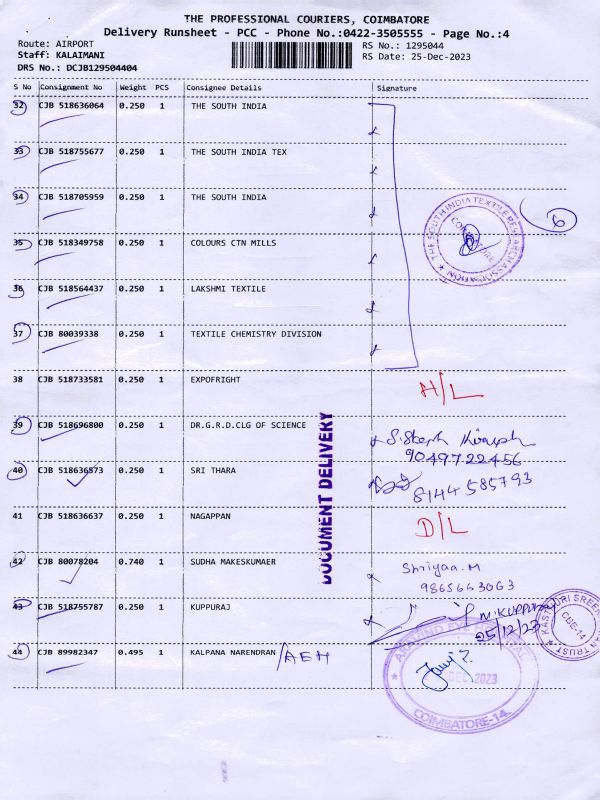 THE PROFESSIONAL COURIERS, COIMBATORE
Delivery Runsheet - PCC - Phone No.:0422-3505555 - Page No.:4
Route: AIRPORT
RS No.: 1295044
Staff: KALAIMANI
RS Date: 25-Dec-2023
DRS No.: DCJB129504404
S No Consignment No Weight PCS Consignee Details Signature
32 CJB 518636064 0.250 1 THE SOUTH INDIA
33 CJB 518755677 0.250 1 THE SOUTH INDIA TEX
34 CJB 518705959 0.250 1 THE SOUTH INDIA
THE SOUTH INDIA TEXTILE RESEARCH ASSOCIATION
6
35 CJB 518349758 0.250 1 COLOURS CTN MILLS
36 CJB 518564437 0.250 1 LAKSHMI TEXTILE
37 CJB 80039338 0.250 1 TEXTILE CHEMISTRY DIVISION
38 CJB 518733581 0.250 1 EXPOFRIGHT H/L
39 CJB 518696800 0.250 1 DR.G.R.D.CLG OF SCIENCE
9049722456
40 CJB 518636573 0.250 1 SRI THARA
8144 585793
DOCUMENT DELIVERY
41 CJB 518636637 0.250 1 NAGAPPAN D/L
42 CJB 80078204 0.740 1 SUDHA MAKESKUMAER Shriyaa.M
9865663063
43 CJB 518755787 0.250 1 KUPPURAJ N.KUPPURAJ
25/12/23
CBE-14
44 CJB 89982347 0.495 1 KALPANA NARENDRAN /AEH
DEC 2023
COIMBATORE-14.